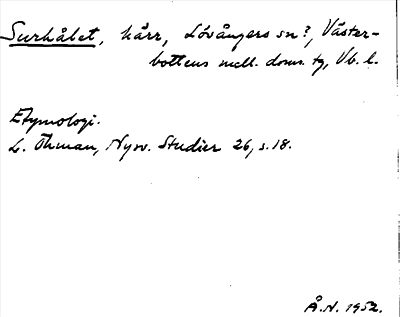 Surhålet, kärr, Lövångers sn?, Väster-
bottens mell. doms. tg, Vb. l.
Etymologi.
L. Thman, Nysv. Studier 26, s. 18.
Å.N. 1952.